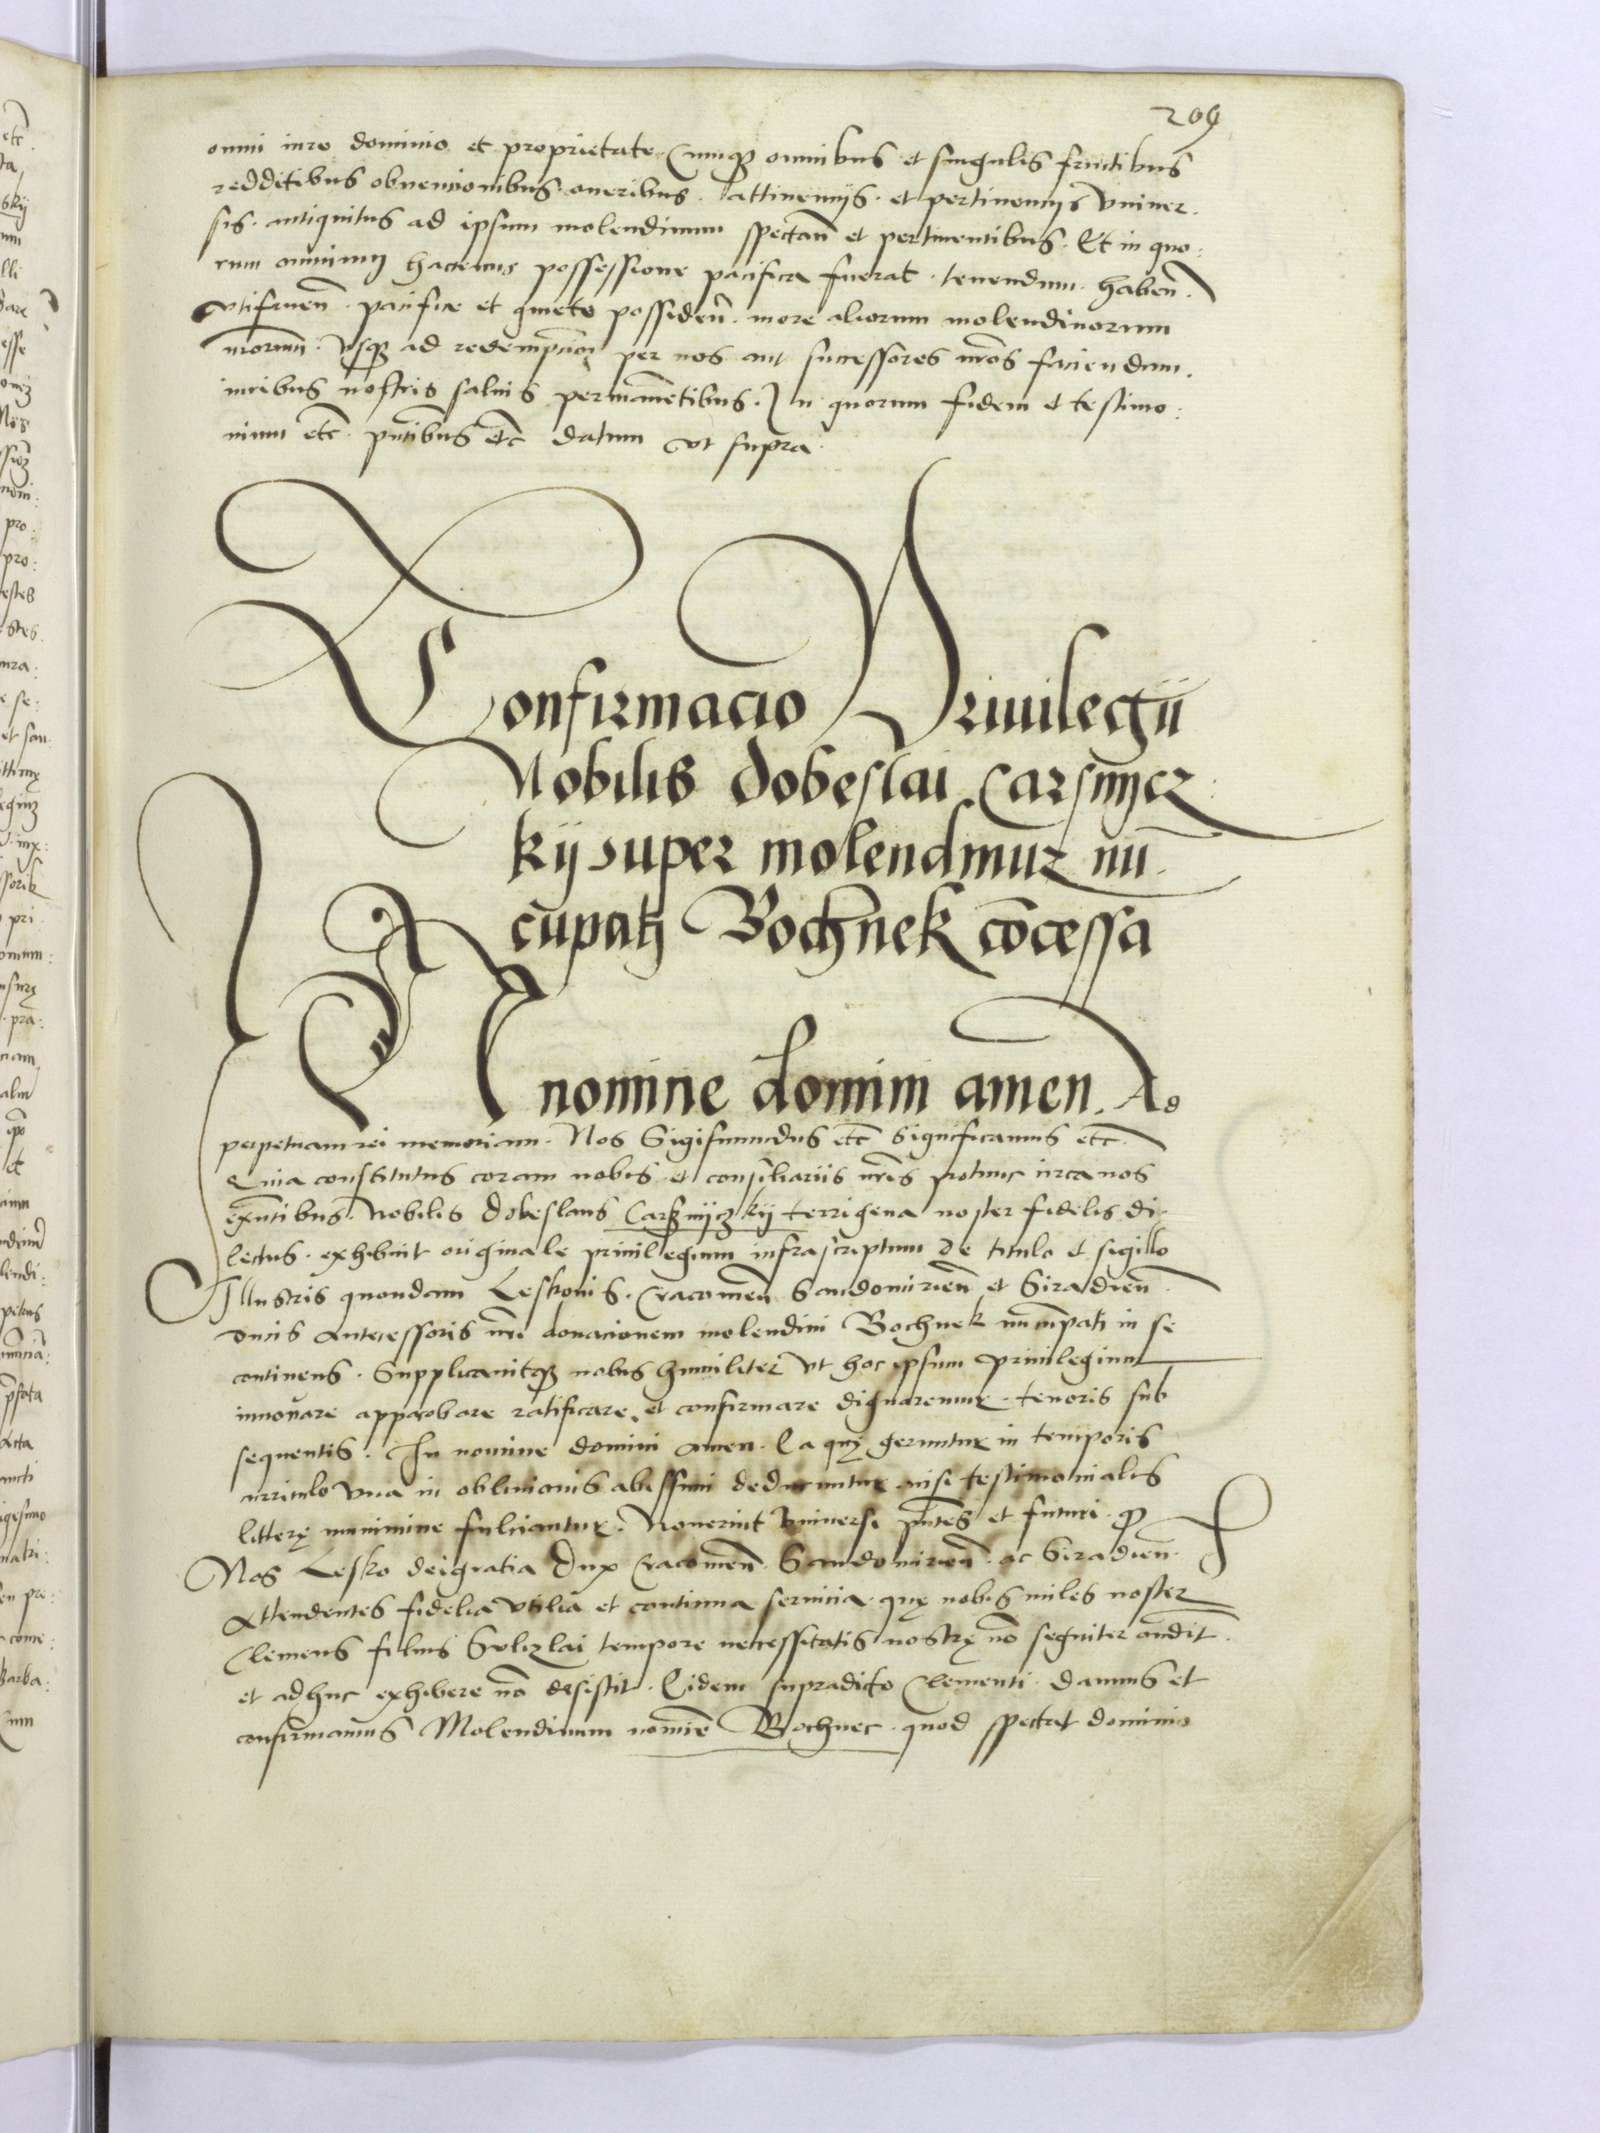 209
omni iure dominio et proprietate Cumq3 omnibus et singulis fructibus
redditibus obvencionibus oneribus. attinencijs. et pertinencijs vniuer.
sis. antiquitus ad ipsum molendinum spectan̄ et pertinentibus. Et in quo:
rum omnium hactenus possessione pacifica fuerat. tenendum. haben̄.
vtifruen̄. pacifice et quiete possiden̄. more aliorum molendinorum
nrorum. vsq3 ad redempcōn̄ per nos aut successores nr̄os faciendam.
iuribus nostris saluis permanētibus. In quorum fidem et testimo:
nium etc̄. pn̄tibus etc̄ datum vt supra.
Confirmacio Priuilegii
Nobilis dobeslai Carsnycz
kij super molendinum nū
cupatj Bochnek cōcessa
In nomine domini amen. Ad
perpetuam rei memoriam. Nos Sigismundus etc̄ significamus etc̄.
Quia constitutus coram nobis et consiliariis nr̄is protunc circa nos
exn̄tibus. Nobilis Dobeslaus Carsznyczkij terrigena noster fidelis di
lectus. exhibuit originale priuilegium infrascriptum de titulo et sigillo
Illustris quondam Leskonis. Cracouien̄ Sandomirien̄ et Siradien̄.
ducis antecessoris nr̄i donacionem molendini Bochnek nūcupatj in se
continens. Supplicauitq3 nobis humiliter vt hoc ipsum priuilegium
innouare approbare ratificare et confirmare dignaremur. tenoris sub
sequentis. In nomine domini amen. Ea quę geruntur in temporis
curriculo vna in obliuionis abissum deducuntur nisi testimonialis
litterę munimine fulciantur. Nouerint vniuersi pn̄tes et futuri. q
Nos Lesko dei gratia Dux Cracouien̄. Sandomirien̄. ac Siradien̄.
Attendentes fidelia vtilia et continua seruicia. quę nobis miles noster
Clemens filius Sulizlai tempore necessitatis nostrę nō segniter
et adhuc exhibere nō desistit. Eidem supradicto Clementi. damus et
confirmamus Molendinum nomīe Bochnec. quod spectat dominio